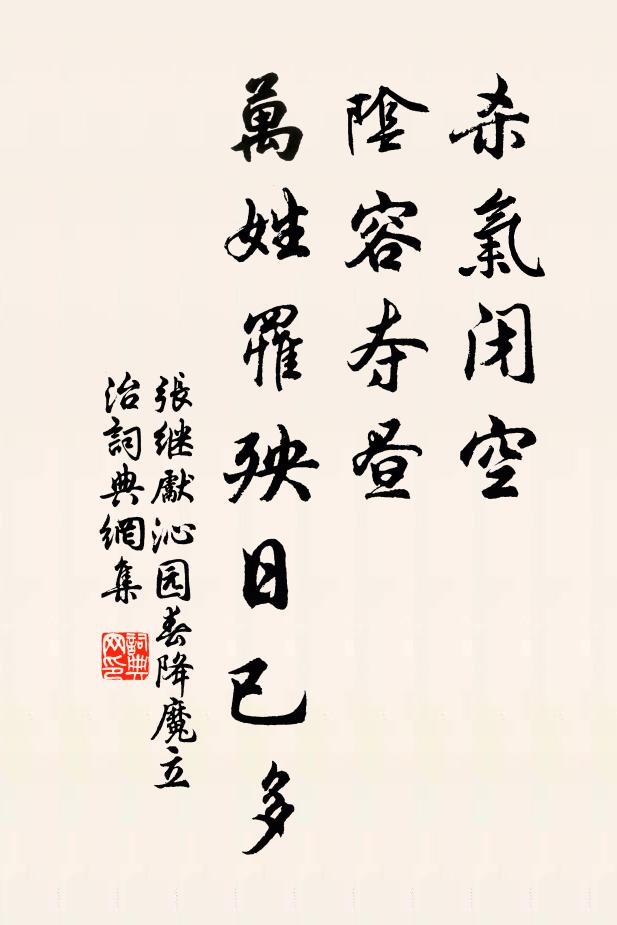 杀氣闭空
陰容夺昼
萬姓罹殃日已多
張继獻沁园春降魔立
治詞典網集
詞典网印